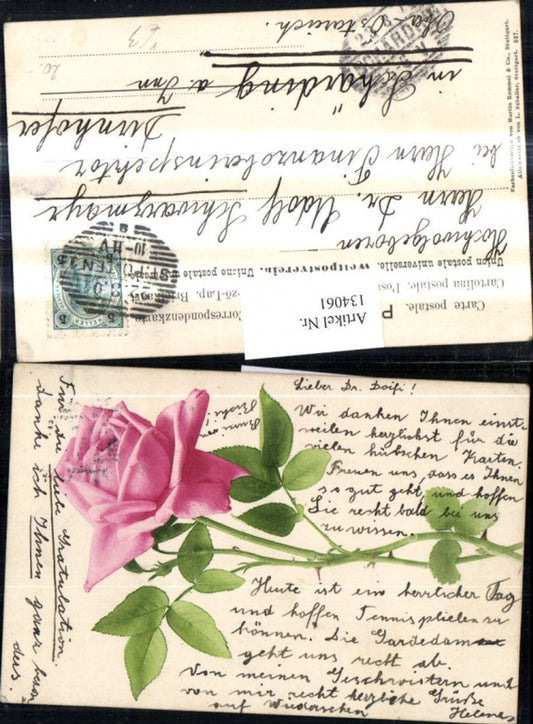 Carte postale.
Cartolina postale.
Correspondenzkarte
Weltpostverein. Union postale universelle.
Farbenlichtdruck von Martin Rommel & Co., Stuttgart.
Hochwolgeboren
Herrn Dr. Udolf Schwarzmayr
bei Herrn Finanzoberinspektor
Dirnhofer
in Schärding a. Inn
Ober-Österreich.
Artikel Nr.
134061
Lieber Dr. Dolfi!
Wir danken Ihnen einst-
weilen herzlichst für die
vielen hübschen Karten.
Freuen uns, dass es Ihnen
so gut geht, und hoffen
Sie recht bald bei uns
zu wissen.
Heute ist ein herrlicher Tag
und hoffen Tennisplielen zu
können. Die Gardedam
geht uns recht ab.
Von meinen Geschwistern und
von mir recht herzliche Grüße
auf Wiedersehen
Für die liebe Gratulation
danke ich Ihnen ganz beson
ders.